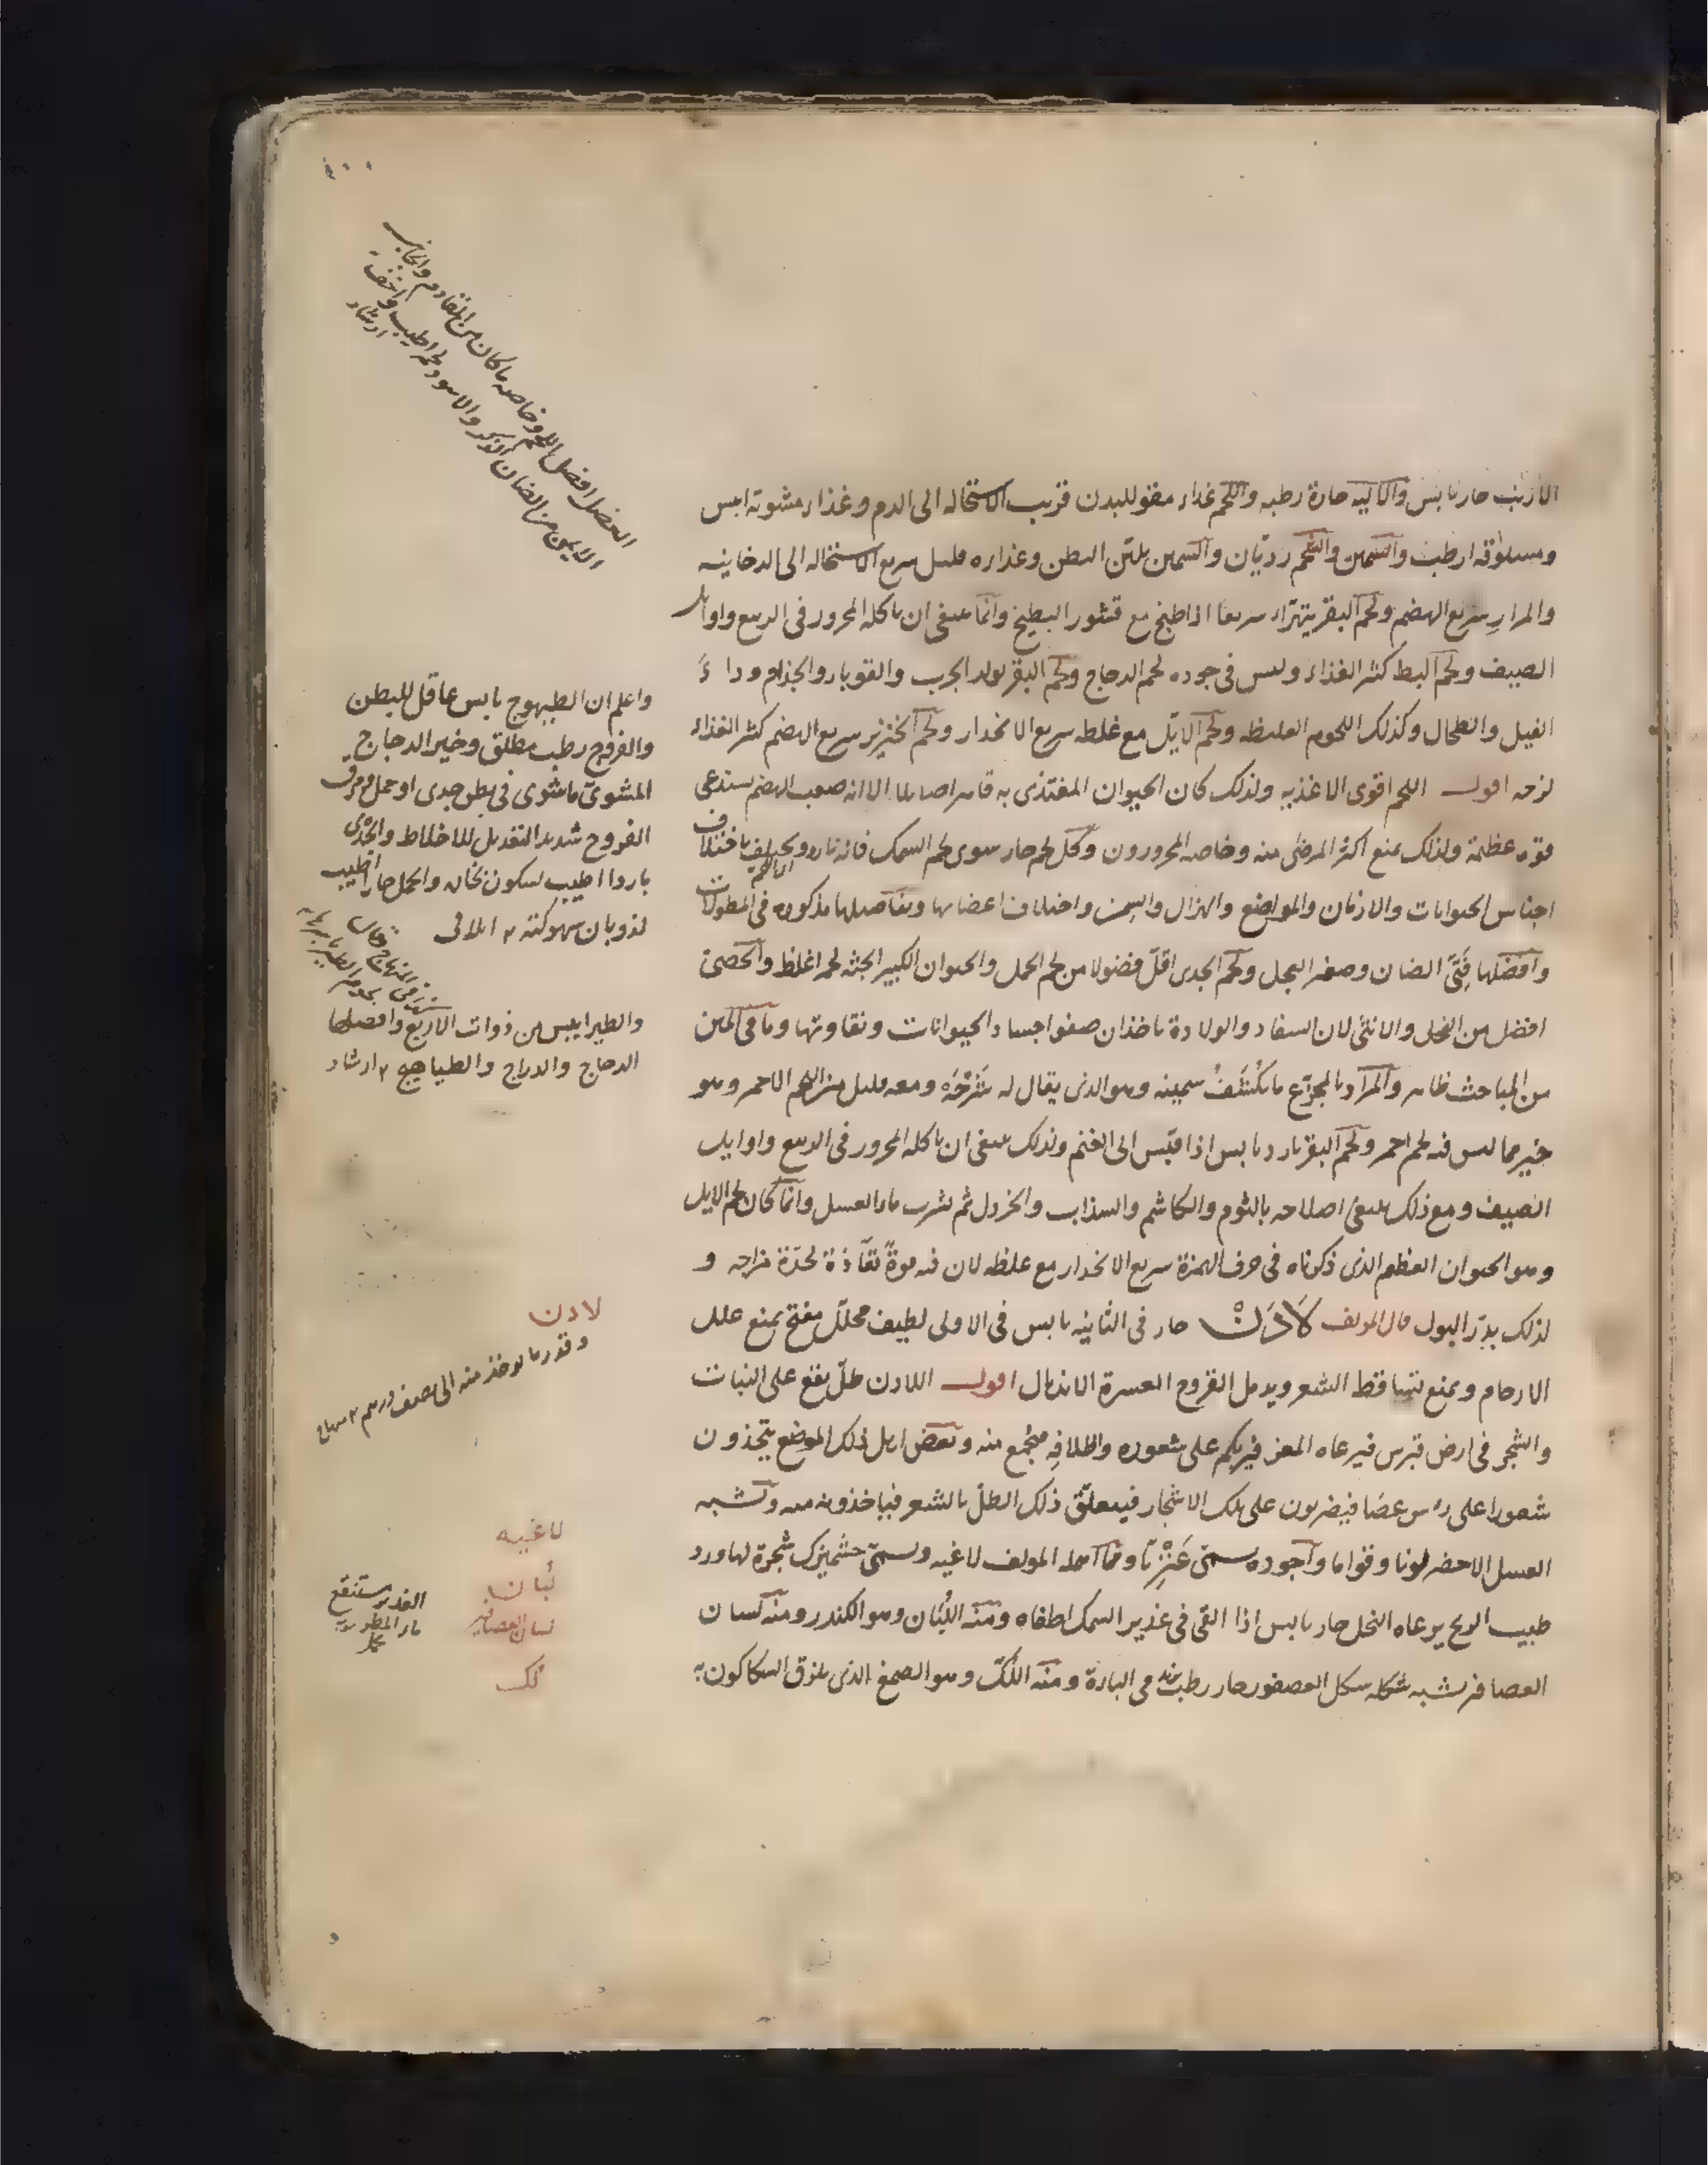 الأرنب حار يابس والالية حارة رطبه واللحم غذاء مقو للبدن قريب الاستحاله الى الدم وغذاء مشويه ايبس
ومسلوقه ارطب والسمين والشحم رديان والسمين يلين البطن وغذاره قليل سريع الاستحاله الى الدخانيه
والمرار سريع الهضم ولحم البقر يتهراء سريعا اذا طبخ مع قشور البطيخ وانما ينبغى ان ياكله المحرور فى الربيع واوايل
الصيف ولحم البط كثير الغذاء وليس فى جوده لحم الدجاج ولحم البقر يولد الجرب والقوبا والجذام وداء
الفيل والطحال وكذلك اللحوم الغليظه ولحم الايّل مع غلظه سريع الانحدار ولحم الخنزير سريع الهضم كثير الغذاء
لزجه اقول اللحم اقوى الاغذيه ولذلك كان الحيوان المغتذى به الا انه صعب الهضم يستدعى
قوه عظيمة ولذلك يمنع اكثر المرضى منه وخاصه المحرورون وكل لحم حار سوى لحم السمك فانه بارد ويختلف باختلاف
اجناس الحيوانات والازمان والمواضع والهزال والسمن واختلاف اعضايها وتفاصيلها مذكوره فى المطولات
وافضلها فتىّ الضان وصغير العجل ولحم الجدى اقلّ فضولا من لحم الحمل والحيوان الكبير الجثه لحمه اغلظ والخصىّ
افضل من الفحل والانثى لان السفاد والولادة ياخذان صفو اجساد الحيوانات ونقاوتها وما فى المتن
من المباحث ظاهر والمراد بالمجزّع سمينه وهو الذى يقال له شَرْحَه ومعه قليل من اللحم الاحمر وهو
خير مما ليس فيه لحم احمر ولحم البقر بارد يابس اذا قيس الى الغنم ولذلك ينبغى ان ياكله المحرور فى الربيع واوايل
الصيف ومع ذلك ينبغى اصلاحه بالثوم والكاشم والسذاب والخردل ثم يشرب ماء العسل وانما كان لحم الايل
وهو الحيوان العظيم الذى ذكرناه فى حرف الهمزة سريع الانحدار مع غلظه لان فيه قوةً نفّاذة لحدّة مزاجه و
لذلك يدرّ البول قال المولف لَاذَنْ حار فى الثانيه يابس فى الاولى لطيف محلّل مفتح يمنع علل
الارحام ويمنع تساقط الشعر ويدمل القروح العسرة الاندمال اقول اللادن طلّ يقع على النبات
والشجر فى ارض قبرس فيرعاه المعز فيرتكم على شعوره واظلافه فيجمع منه وبعض اهل ذلك الموضع يتخذون
شعورا على رءس عصا فيضربون على تلك الاشجار فيتعلّق ذلك الطلّ بالشعر فياخذونه منه ويشبه
العسل الاخضر لونا وقواما واجوده يسمى وممّا اهمله المولف لاغيه ويسمى شجرة لها ورد
طيب الريح يرعاه النحل حار يابس اذا القى فى غدير السمك اطفاه ومنه اللُبَان وهو الكندر ومنه لسان
العصافير يشبه شكله شكل العصفور حار رطب يزيد فى الباءة ومنه اللُكّ وهو الصمغ الذى يلزق السكاكون به
العضل افضل اللحم وخاصه ما كان من المقادم والجانب
الايمن من الضان الذكر والاسود لحمه اطيب واخف
ارشاد
واعلم ان الطيهوج يابس عاقل للبطن
والفروج رطب مطلق وخير الدجاج
المشوىّ ما شوى فى بطن جدى او حمل ومرق
الفروج شديد التعديل للاخلاط والجدى
باردا اطيب لسكون بخاره والحمل حارا اطيب
لذوبان سهوكته ايلاقى
والطير ايبس من ذوات الاربع وافضلها
الدجاج والدراج والطياهيج ارشاد
لادن
وقدر ما يوخذ منه الى نصف درهم منهاج
لاغيه
لُبان
الغدير مستنقع
لسان العصافير
ماء المطر
لُك